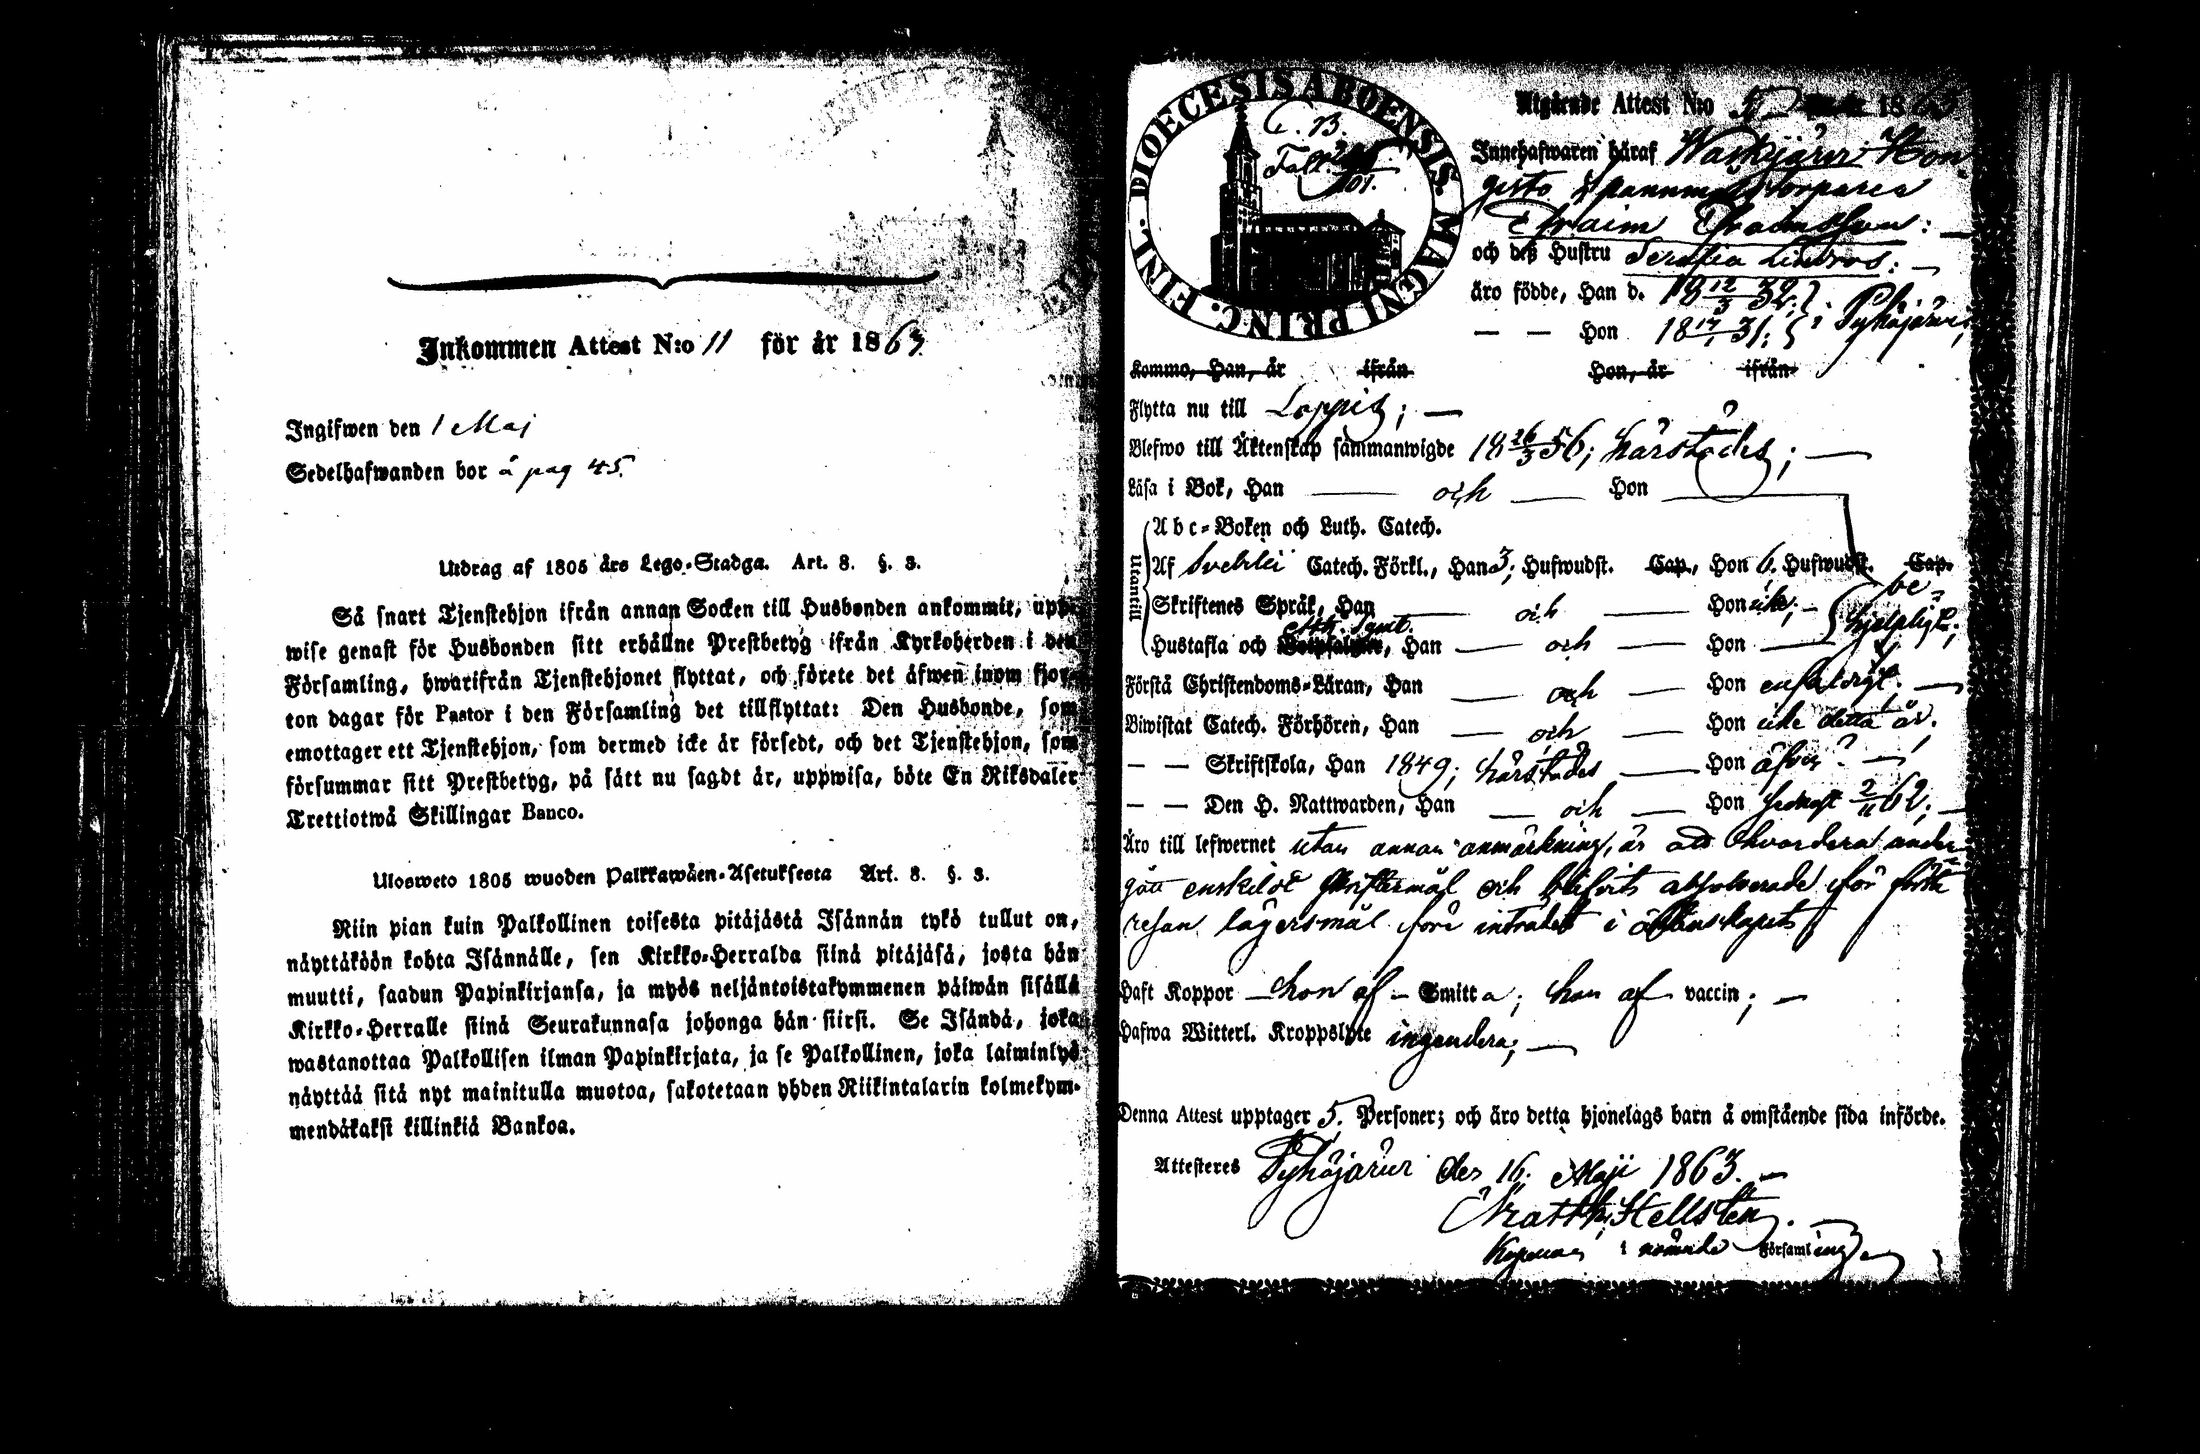 Inkommen Attest N:o 11 för år 1863
Ingifwen den 1 Maj
Sedelhafwanden bor å pag 45.
Utdrag af 1805 års Lego-Stadga. Art. 8. §. 3.
Så snart Tjenstehjon ifrån annan Socken till Husbonden ankommit, upp-
wise genast för Husbonden sitt erhållne Prestbetyg ifrån Kyrkoherden i den
Församling, hwarifrån Tjenstehjonet flyttat, och förete det äfwen inom fjor-
ton dagar för Pastor i den Församling det tillflyttat: Den Husbonde, som
emottager ett Tjenstehjon, som dermed icke är försedt, och det Tjenstehjon, som
försummar sitt Prestbetyg, på sätt nu sagdt är, uppwisa, böte En Riksdaler
Trettiotwå Skillingar Banco.
Ulosweto 1805 wuoden Palkkawäen-Asetuksesta Art. 8. §. 3.
Niin pian kuin Palkollinen toisesta pitäjästä Isännän tykö tullut on,
näyttäköön kohta Isännälle, sen Kirkko-Herralda siinä pitäjäsä, josta hän
muutti, saadun Papinkirjansa, ja myös neljäntoistakymmenen päiwän sisällä
Kirkko-Herralle siinä Seurakunnasa johonga hän siirsi. Se Isändä, joka
wastanottaa Palkollisen ilman Papinkirjata, ja se Palkollinen, joka laiminlyö
näyttää sitä nyt mainitulla muotoa, sakotetaan yhden Riikintalarin kolmekym-
mendäkaksi killinkiä Bankoa.
DIOECESIS ABOENSIS. MAGNI PRINC. FINL.
C. B.
Utgående Attest N:o 1863
Innehafwaren häraf Waskijärvi Kon
gisto torpares
Efraim Efraimsson:
och deß Hustru Serafia Lindros:
äro födde, Han d. 18 12/3 32.
— — Hon 18 31: Pyhäjärvi;
Kommo, Han, år ifrån Hon, år ifrån
Flytta nu till Loppis; —
Blefwo till Äktenskap sammanwigde 18 26/3 56; härstädes; —
Läsa i Bok, Han — och — Hon —
Abc-Boken och Luth. Catech.
Utantill
Af Svebilii Catech. Förkl., Han 3; Hufwudst. Cap., Hon 6. Hufwudst. Cap.
be-
Skriftenes Språk, Han — och — Hon icke; —
hjelpligt;
Hustafla och Han — och — Hon —
Förstå Christendoms-Läran, Han — och — Hon enfaldigt. —
Biwistat Catech. Förhören, Han — och — Hon icke detta år.
— — Skriftskola, Han 1849; härstädes — Hon äfven —
— — Den H. Nattwarden, Han — och — Hon sednast 2/11 62; —
Äro till lefwernet utan annan anmärkning, än att hvardera under-
gått enskildt skriftermål och blifvit absolverade för första
resan lägersmål före inträdet i äktenskapet
Haft Koppor — hon af — Smitta; han af vaccin; —
Hafwa Witterl. Kroppslyte ingendera; —
Denna Attest upptager 5. Personer; och äro detta hjonelags barn å omstående sida införde.
Attesteres Pyhäjärvi den 16. Maji 1863. —
Matth. Hellsten. —
i nämnde Församling